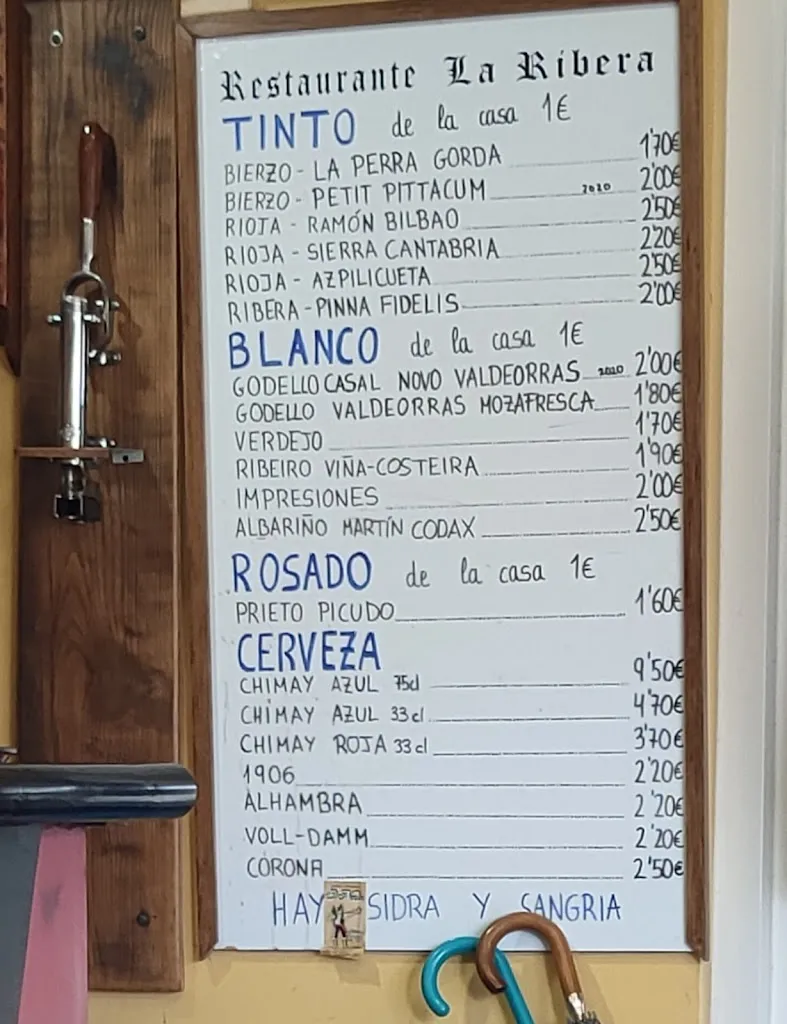 Restaurante La Ribera
TINTO de la casa 1€
BIERZO - LA PERRA GORDA 1'70€
BIERZO - PETIT PITTACUM 2020 2'00€
RIOJA - RAMÓN BILBAO 2'50€
RIOJA - SIERRA CANTABRIA 2'20€
RIOJA - AZPILICUETA 2'50€
RIBERA - PINNA FIDELIS 2'00€
BLANCO de la casa 1€
GODELLO CASAL NOVO VALDEORRAS 2020 2'00€
GODELLO VALDEORRAS MOZAFRESCA 1'80€
VERDEJO 1'70€
RIBEIRO VIÑA-COSTEIRA 1'90€
IMPRESIONES 2'00€
ALBARIÑO MARTÍN CODAX 2'50€
ROSADO de la casa 1€
PRIETO PICUDO 1'60€
CERVEZA
CHIMAY AZUL 75cl 9'50€
CHIMAY AZUL 33cl 4'70€
CHIMAY ROJA 33cl 3'70€
1906 2'20€
ALHAMBRA 2'20€
VOLL-DAMM 2'20€
CORONA 2'50€
HAY SIDRA Y SANGRIA